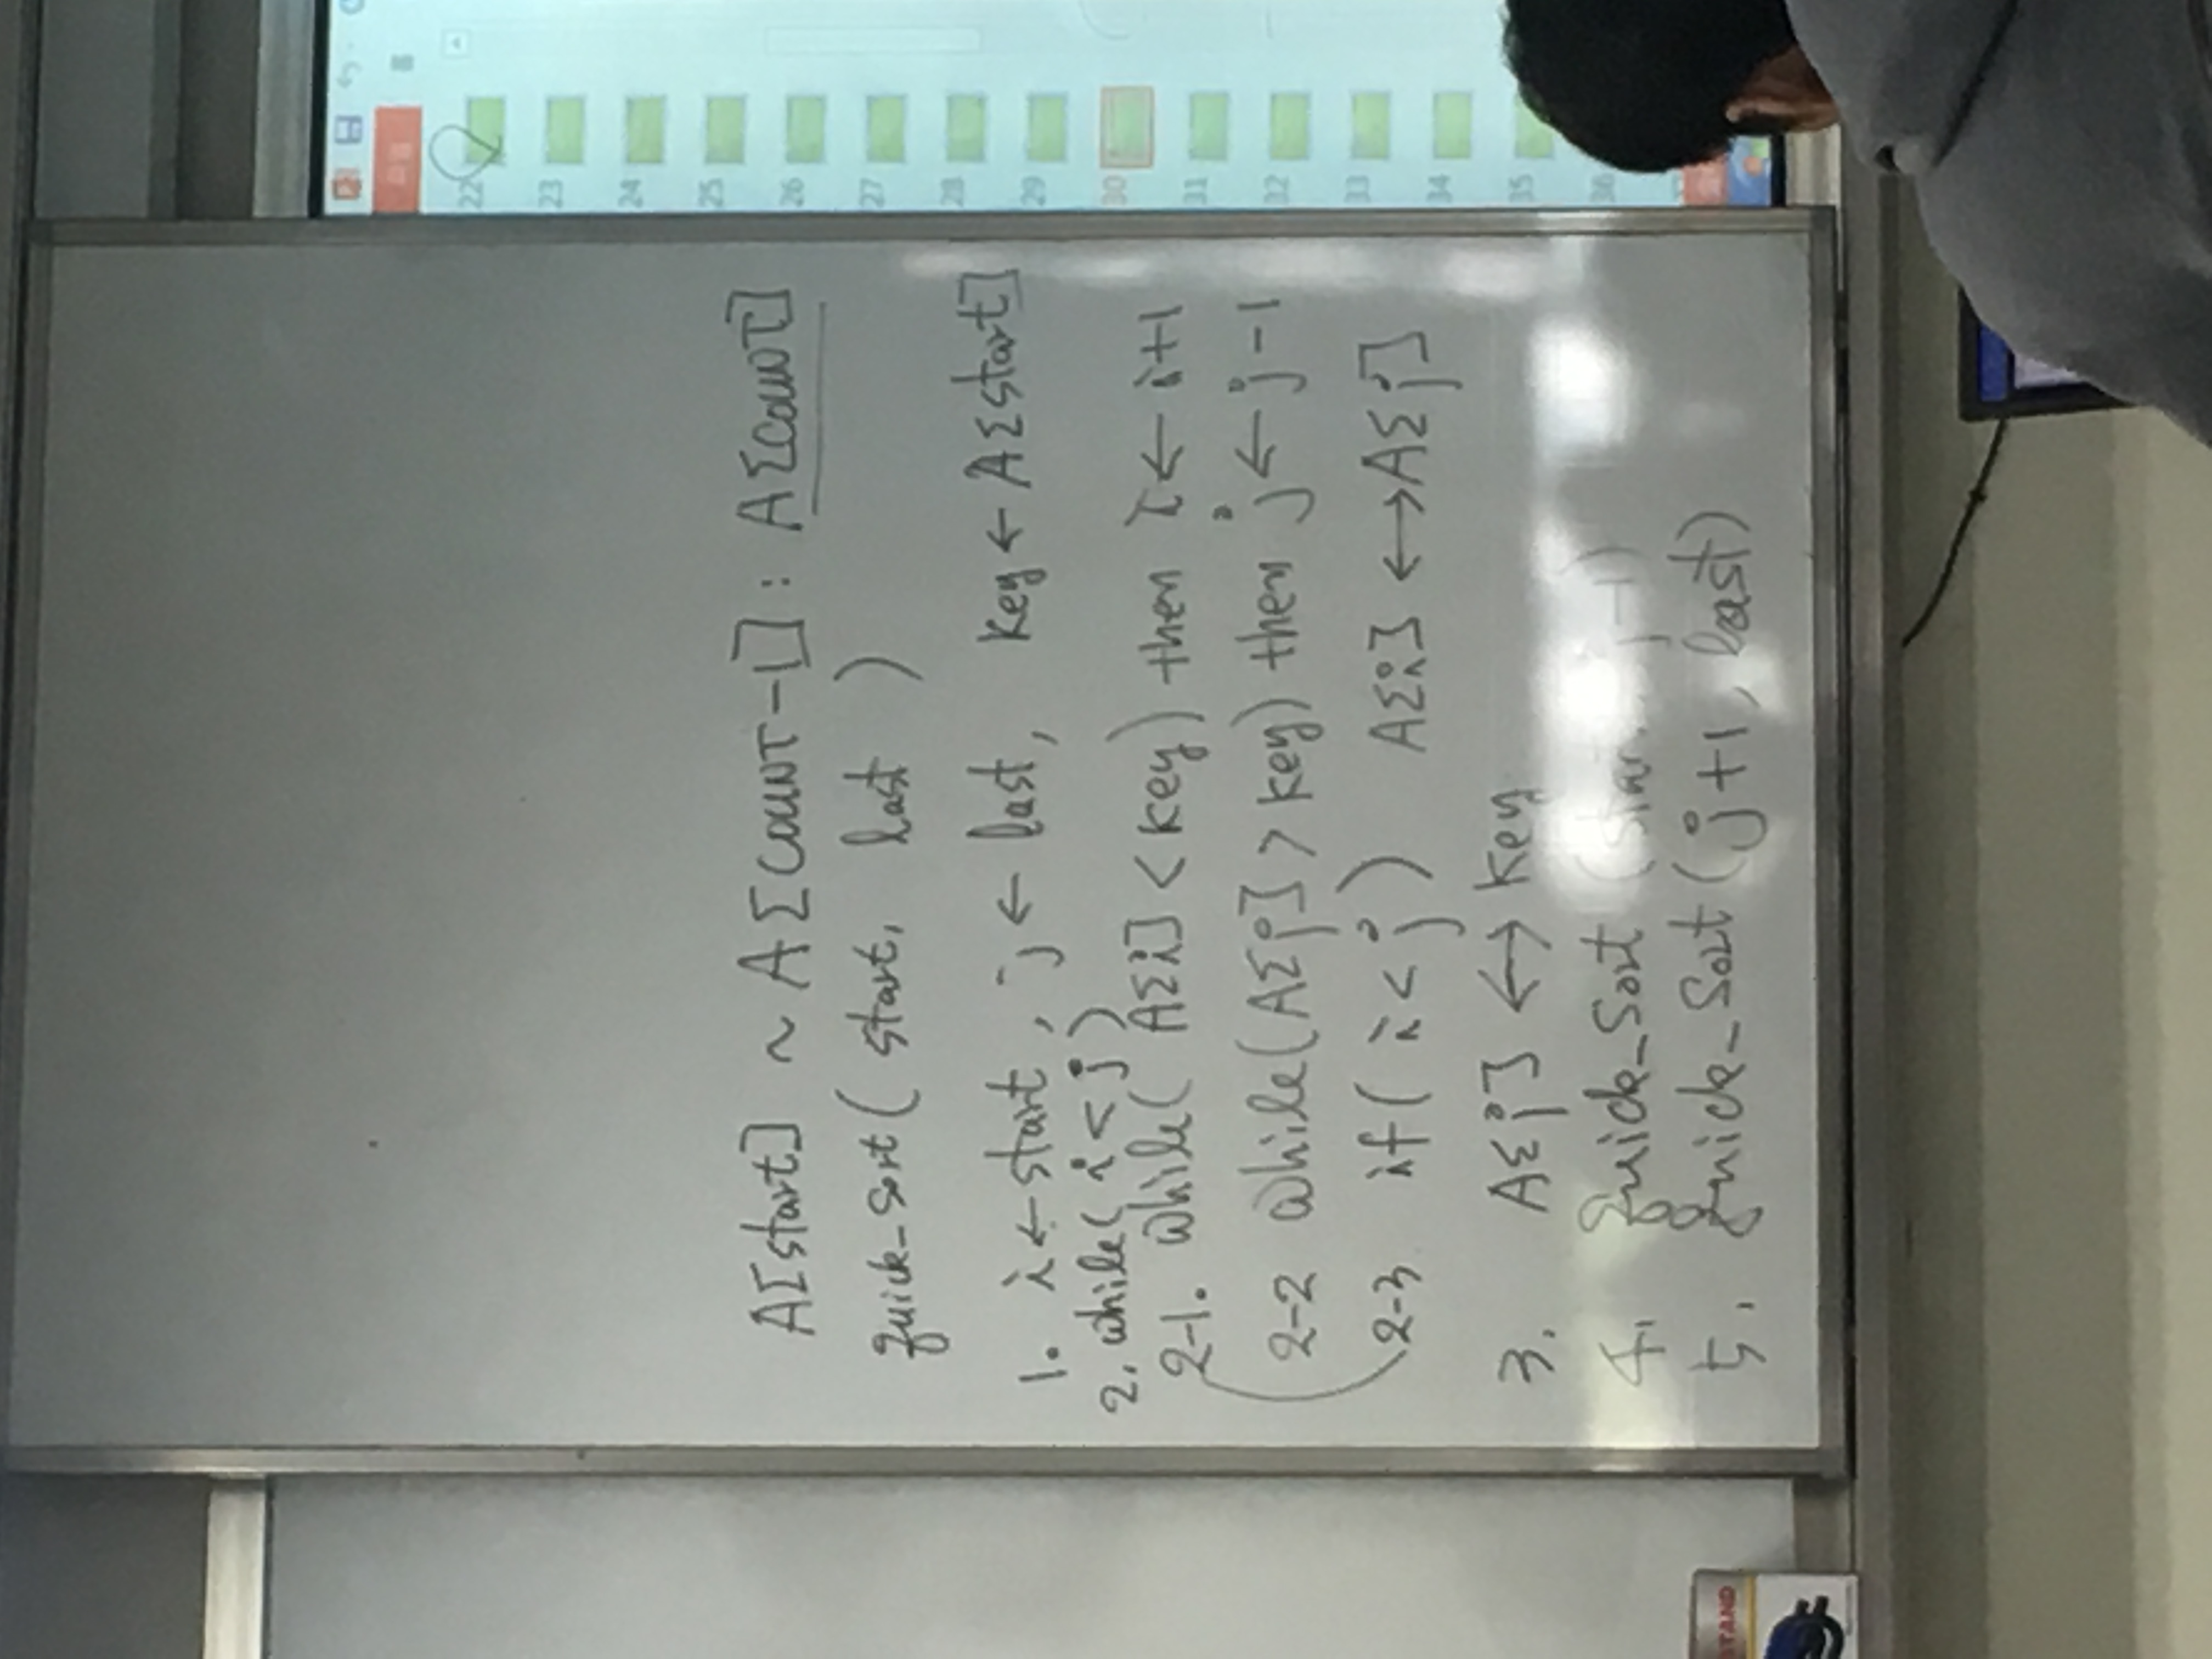 A[start] ~ A[COUNT-1] : A[COUNT]
quick_sort( start, last )
1. i ← start , j ← last, key ← A[start]
2. while( i < j )
2-1. while( A[i] < key) then i ← i+1
2-2 while(A[j] > key) then j ← j-1
2-3 if( i < j ) A[i] ↔ A[j]
3. A[j] ↔ key
4. quick_sort (start, j-1)
5. quick_sort (j+1, last)
STAND
22
23
24
25
26
27
28
29
30
31
32
33
34
35
36